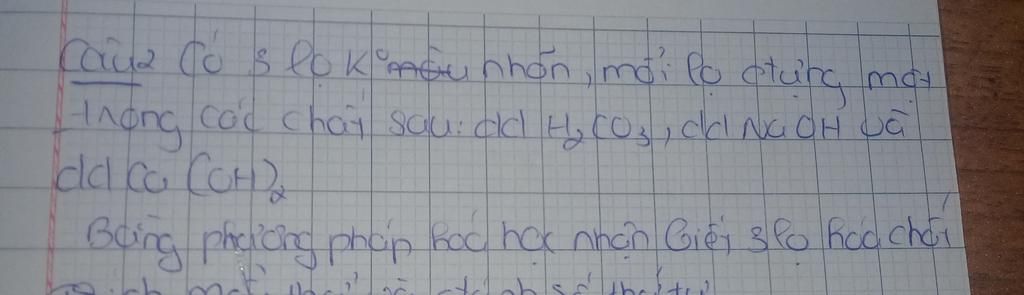 Câu2 Có 3 lọ k° nhãn, mỗi lọ đựng một
trong các chất sau: dd H₂CO₃, dd NaOH và
dd Ca(OH)₂
Bằng phương pháp hoá học nhận biết 3 lọ hoá chất